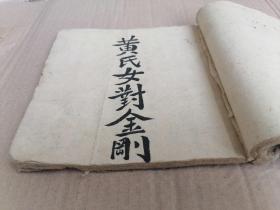 黃氏女對金剛